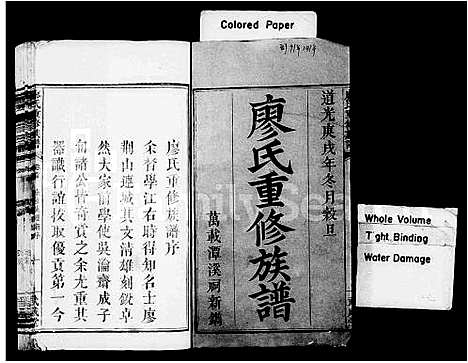 Colored Paper
道光庚戌年冬月穀旦
廖氏重修族譜
萬載潭溪祠新鐫
Whole Volume
Tight Binding
Water Damage
廖氏重修族譜序
余督學江右時得知名士廖
荆山連城其文清雄刻銳卓
然大家前學使吳淪齋成子
旬諸公皆奇賞之余尤重其
器識行誼拔取優貢第一今